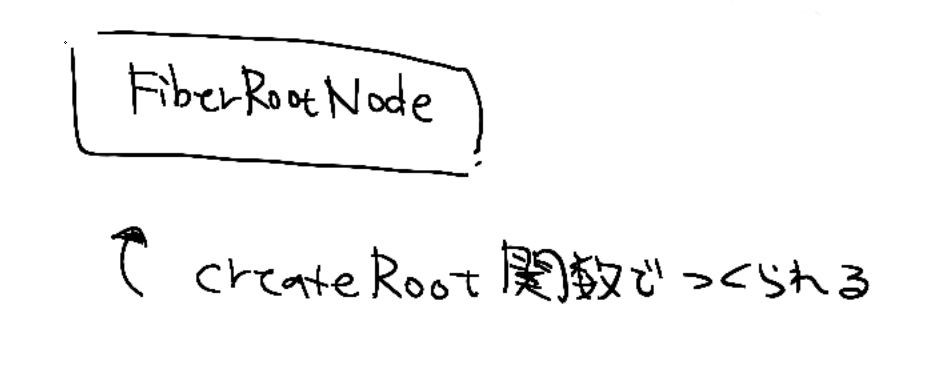 FiberRootNode
createRoot関数でつくられる